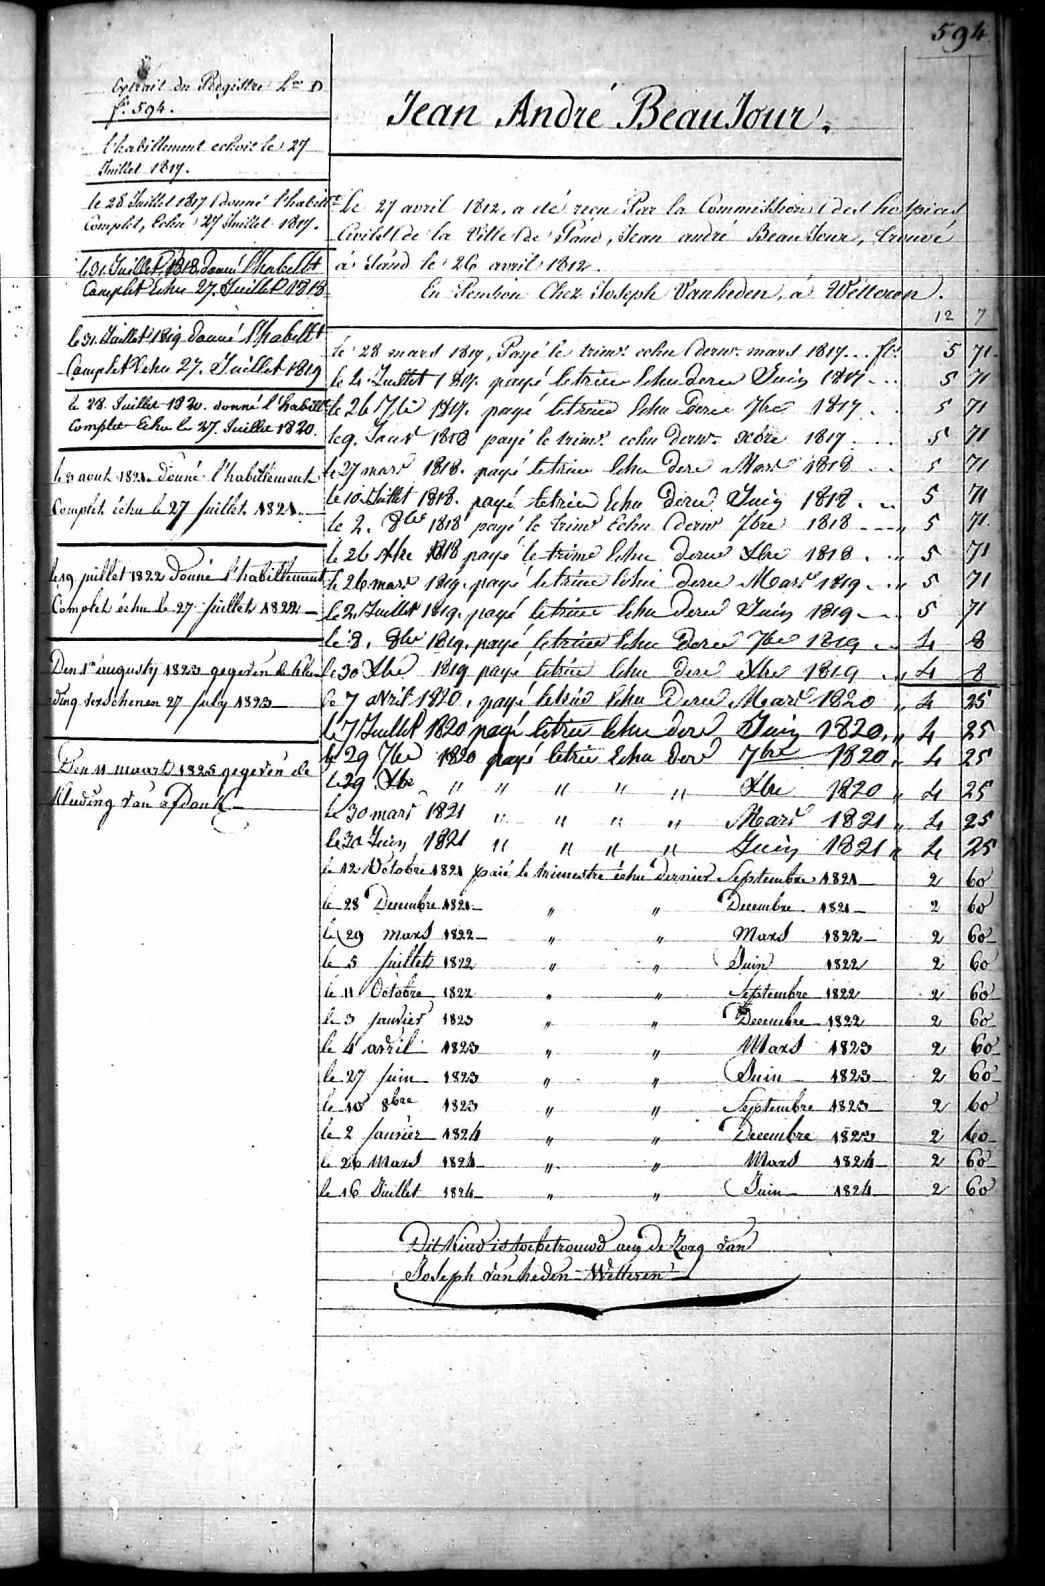 594
Extrait du Registre Lra D
fo. 594.
l'habillement echoit le 27
Juillet 1817.
le 28 Juillet 1817 donné l'habillt
Complet, Echu 27 Juillet 1817.
le 31 Juillet 1818 donné l'habillt
Complet Echu 27 Juillet 1818
le 31 Juillet 1819 donné l'habillt
Complet Echu 27. Juillet 1819
le 28 Juillet 1820. donné l'habillt
Complet Echu le 27. Juillet 1820.
le 3 aout 1821. donné l'habillement
Complet échu le 27 juillet 1821.
le 19 juillet 1822 donné l'habillement
Complet échu le 27 juillet 1822
Den 1n augusty 1823 gegeven de klee-
ding verschenen 27 july 1823
Den 11 maart 1825 gegeven de
kleeding van
Jean André BeauJour.
le 27 avril 1812. a été reçu Par la Commission des hospices
Civils de la Ville de Gand, Jean andré BeauJour, trouvé
à Gand le 26 avril 1812.
En Pension Chez Joseph Vanheden, à Wetteren.
12 7
le 28 mars 1817, Payé le trimr. echu dernr. mars 1817 . . fls 5 71
le 4 Juillet 1817. payé le trim Echu dern Juin 1817 . . 5 71
le 26 7bre 1817. payé le trim Echu Dern 7bre 1817 . . 5 71
le 9. Janvr 1818 payé le trimr. echu dernr. Xbre 1817 . . . 5 71
le 27 mars 1818. payé le trim Echu dern Mars 1818 . . 5 71
le 10 Juillet 1818. payé le trim Echu Dern Juin 1818 . . 5 71
le 2. 8bre 1818 payé le trimr Echu dernr 7bre 1818 - - - " 5 71
le 26 Xbre 1818 payé le trime Echu dern Xbre 1818 . . " 5 71
le 26 mars 1819. payé le trim Echu dern Mars 1819 . . " 5 71
le 2 Juillet 1819. payé le trim Echu dern Juin 1819 - . . 5 71
le 8. 8bre 1819, payé le trim Echu dern 7bre 1819 . . 4 8
le 30 Xbre 1819 payé le trim Echu dern Xbre 1819 . " 4 8
le 7 avril 1820, payé le trim Echu Dern Mars 1820 " 4 25
le 7 Juillet 1820 payé le trim Echu dern Juin 1820 . " 4 25
le 29 7bre 1820 payé le trim Echu der 7bre 1820 " 4 25
le 29 Xbre " " " " " Xbre 1820 " 4 25
le 30 mars 1821 " " " " Mars 1821 " 4 25
le 30 Juin 1821 " " " " Juin 1821 " 4 25
le 12 Octobre 1821 paié le trimestre échu dernier Septembre 1821 2 60
le 28 Decembre 1821 " " Decembre 1821 2 60
le 29 mars 1822 " " Mars 1822 2 60
le 5 juillet 1822 " " Juin 1822 2 60
le 11 Octobre 1822 " " Septembre 1822 2 60
le 3 janvier 1823 " " Decembre 1822 2 60
le 4 avril 1823 " " Mars 1823 2 60
le 27 juin 1823 " " Juin 1823 2 60
le 10 8bre 1823 " " Septembre 1823 2 60
le 2 janvier 1824 " " Decembre 1823 2 60
le 26 Mars 1824 " " Mars 1824 2 60
le 16 Juillet 1824 " " Juin 1824 2 60
Dit kind is toebetrouwd aen de Zorg van
Joseph vanheden Wetteren